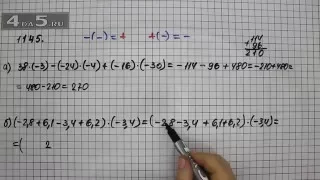 4DA5.RU
1145.
-(-) = +   +(-) = -
+114
96
210
а) 38·(-3) -(-24)·(-4) + (-16)·(-30) = -114 - 96 + 480 = -210 + 480 =
= 480 - 210 = 270
б) (-2,8 + 6,1 - 3,4 + 6,2)·(-3,4) = (-2,8 - 3,4 + 6,1 + 6,2)·(-3,4) =
= (   2